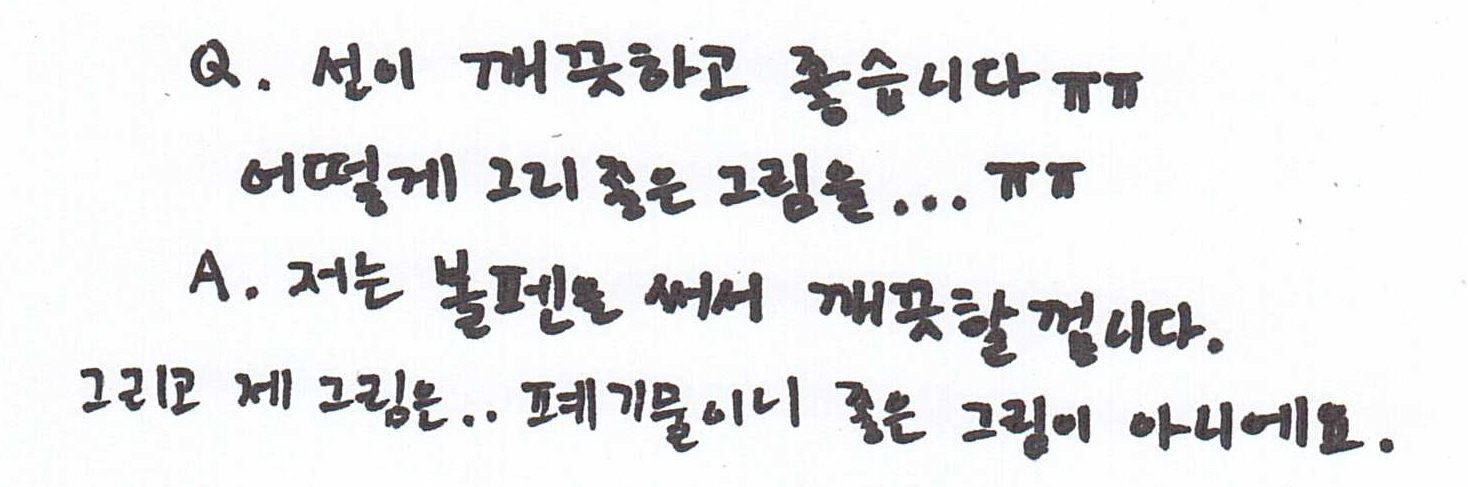 Q. 선이 깨끗하고 좋습니다 ㅠㅠ
어떻게 그리 좋은 그림을... ㅠㅠ
A. 저는 볼펜을 써서 깨끗할 껍니다.
그리고 제 그림은.. 폐기물이니 좋은 그림이 아니에요.